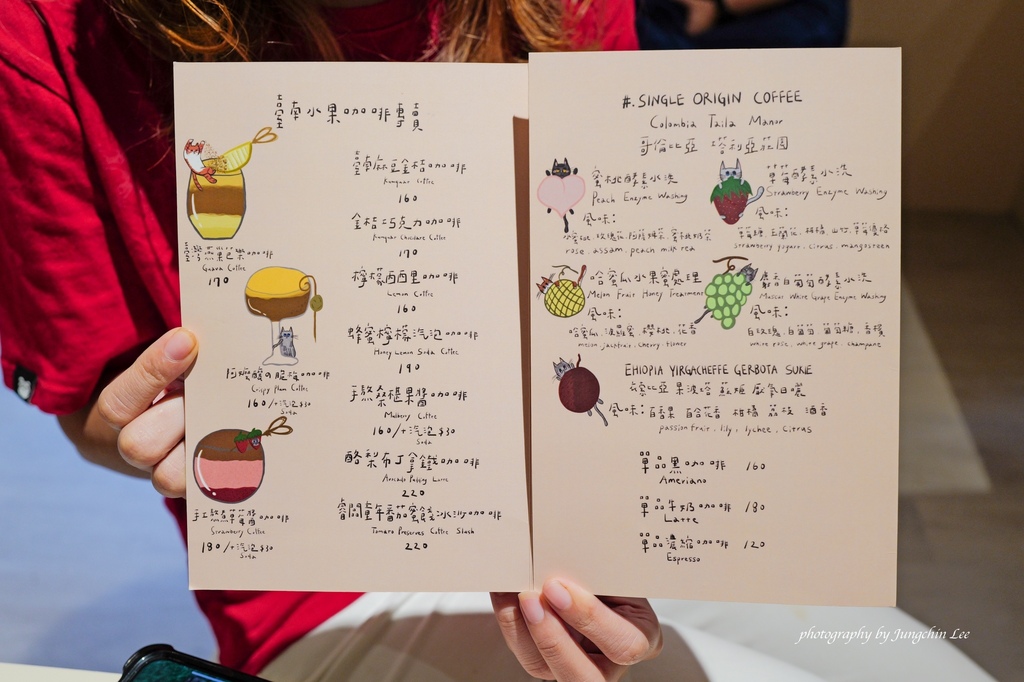 臺南水果咖啡專賣
臺灣芭樂咖啡
Guava Coffee
170
阿嬤酸の脆梅咖啡
Crispy Plum Coffee
160/+汽泡$30
Soda
手工熬煮草莓醬咖啡
Strawberry Coffee
180/+汽泡$30
Soda
臺南麻豆金桔咖啡
Kumquat Coffee
160
金桔巧克力咖啡
Kumquat Chocolate Coffee
170
檸檬西西里咖啡
Lemon Coffee
160
蜂蜜檸檬汽泡咖啡
Honey Lemon Soda Coffee
190
手熬桑椹果醬
Mulberry Coffee
160/+汽泡$30
Soda
酪梨布丁拿鐵咖啡
Avocado Pudding Latte
220
古早番茄蜜餞冰沙咖啡
Tomato Preserves Coffee Slush
220
#. SINGLE ORIGIN COFFEE
Colombia Taila Manor
哥倫比亞 塔利亞莊園
蜜桃酵素水洗
Peach Enzyme Washing
風味:
rose, assam, peach milk tea
草莓酵素水洗
Strawberry Enzyme Washing
風味:
strawberry yogurt, citrus, mangosteen
哈蜜瓜水果蜜處理
Melon Fruit Honey Treatment
風味:
哈蜜瓜、波羅蜜、櫻桃、花香
melon, jackfruit, cherry, flower
麝香白葡萄酵素水洗
Muscat White Grape Enzyme Washing
風味:
白玫瑰、白葡萄、葡萄糖、香檳
white rose, white grape, champane
EHIOPIA YIRGACHEFFE GERBOTA SUKE
風味:百香果 百合花香 柑橘 荔枝 酒香
passion fruit, lily, lychee, citras
單品黑咖啡 160
Ameriano
單品牛奶咖啡 180
Latte
單品濃縮咖啡 120
Espresso
photography by Jungchin Lee